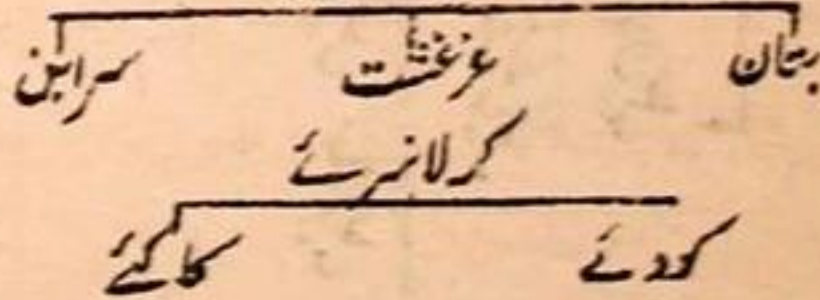 بٹان غرغشت سرابن
کرلانرے
کودئے کاکئے